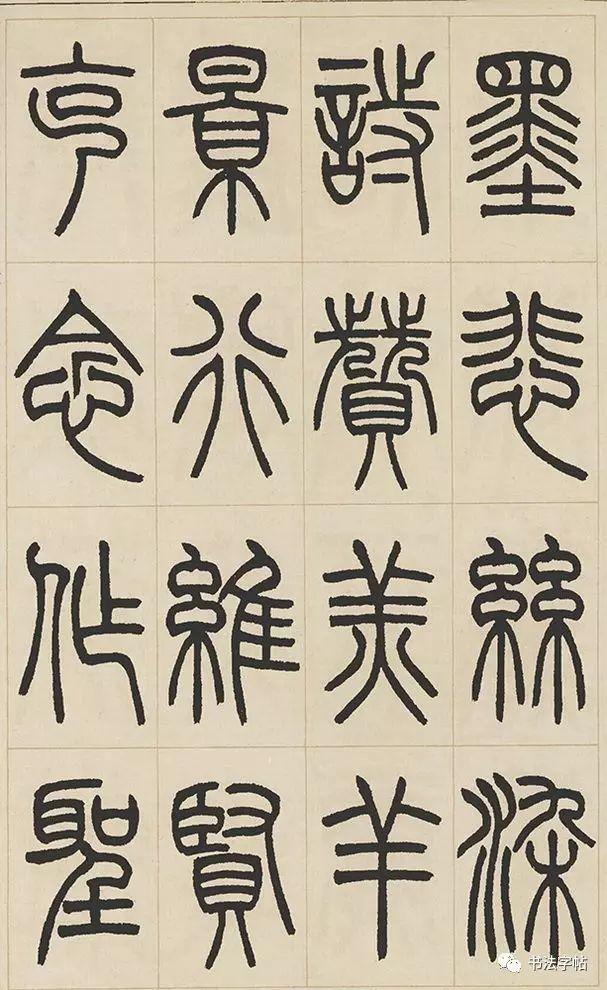 墨悲絲染
詩贊羔羊
景行維賢
克念作聖
书法字帖